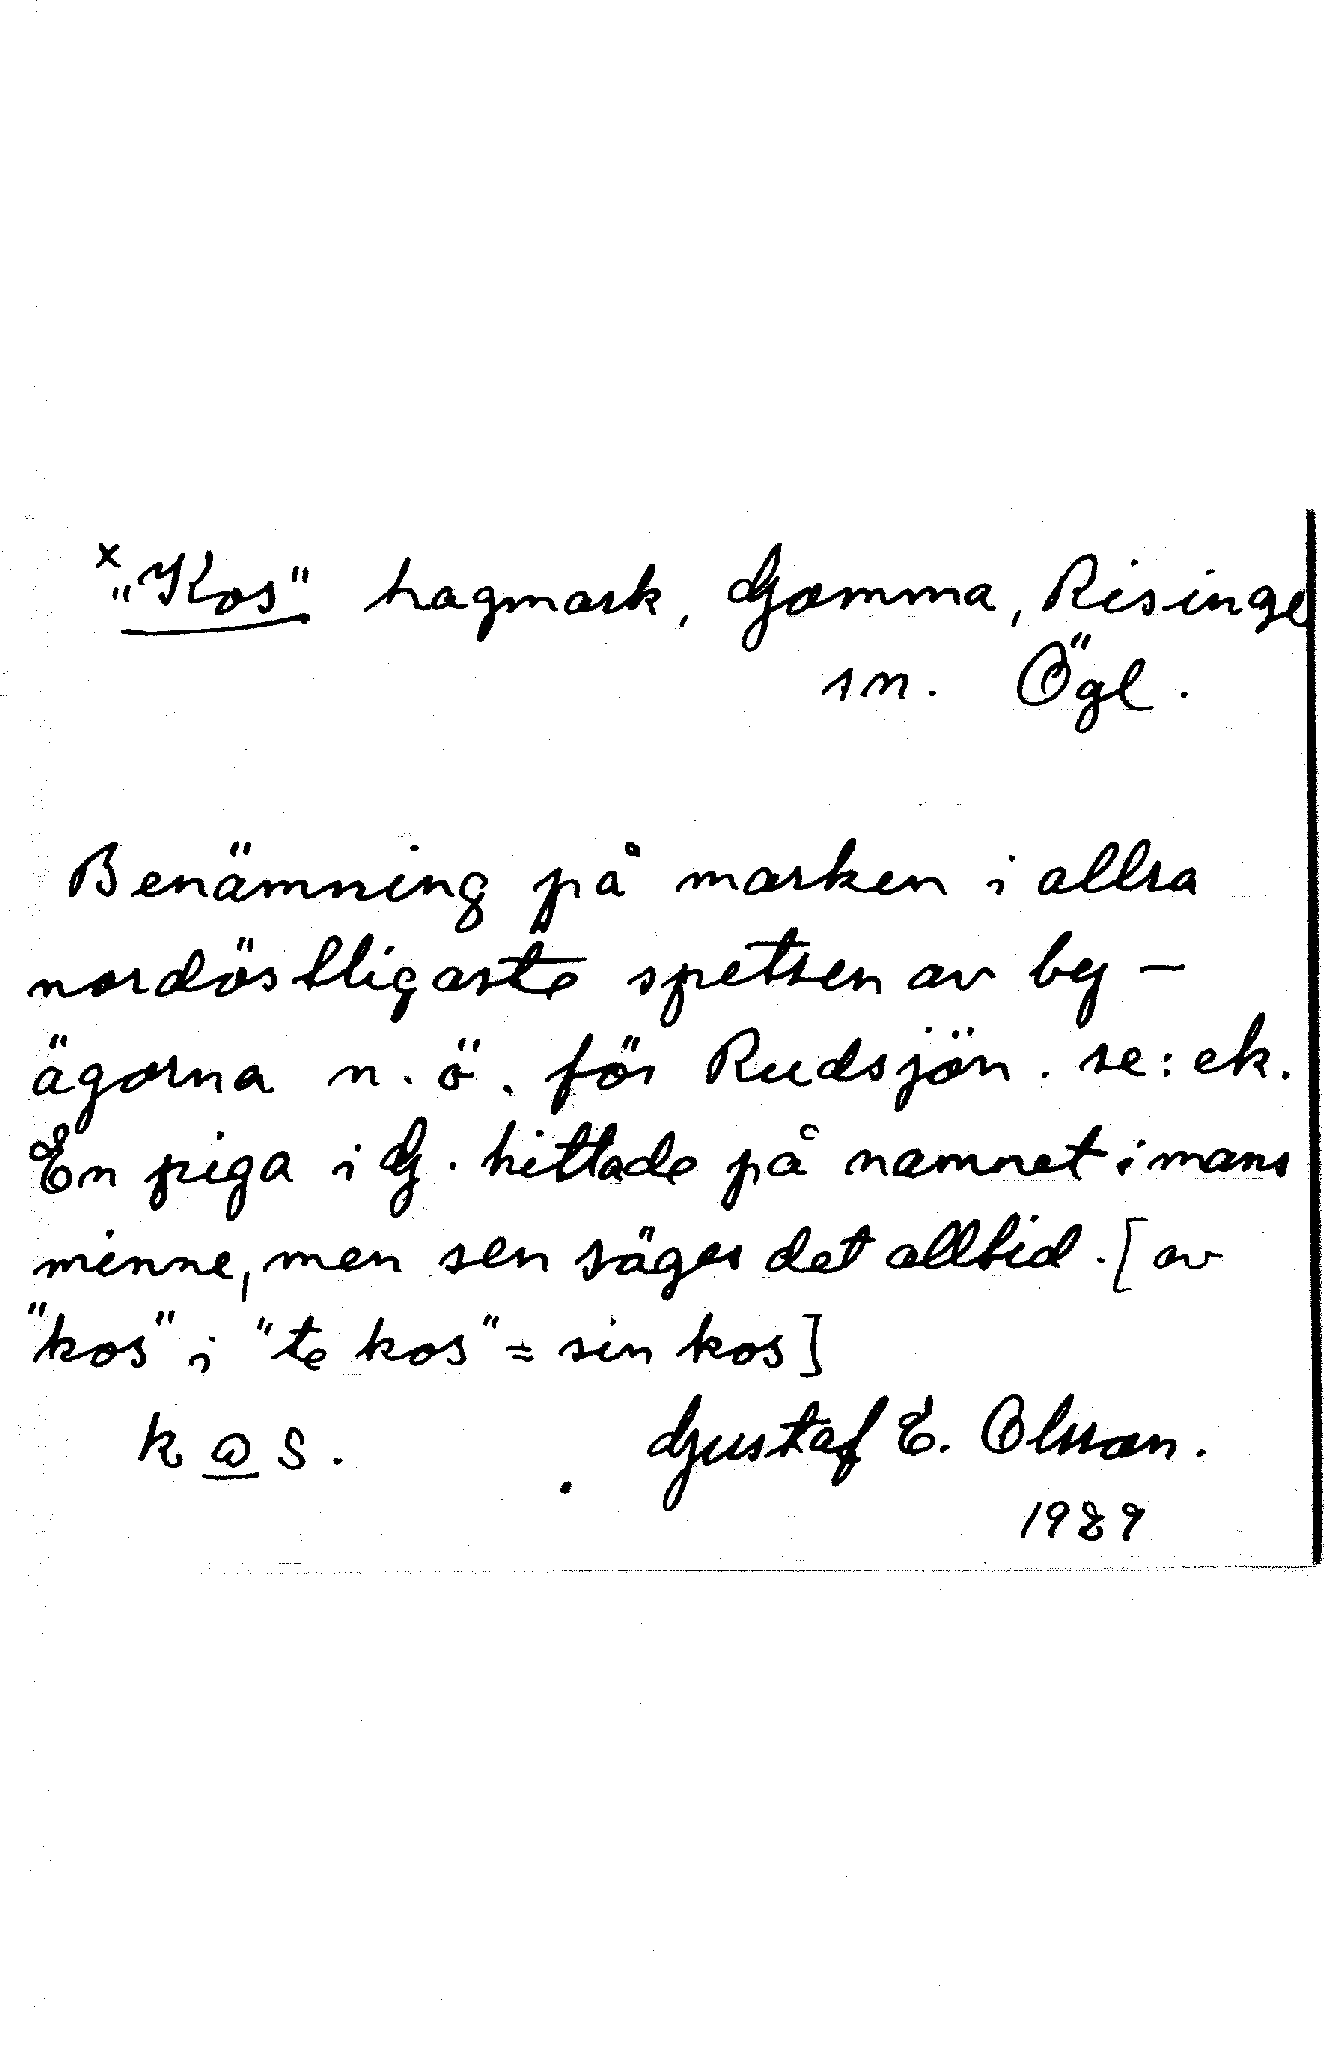 x "Kos" hagmark, Gomma, Risinge
sn. Ögl.
Benämning på marken i allra
nordöstligaste spetsen av by-
ägorna n. ö. för Rudsjön. se: ek.
En piga i G. hittade på namnet i mans
minne, men sen säges det alltid. [av
"kos" i "te kos" = sin kos]
k o s.
Gustaf E. Olsson.
1929